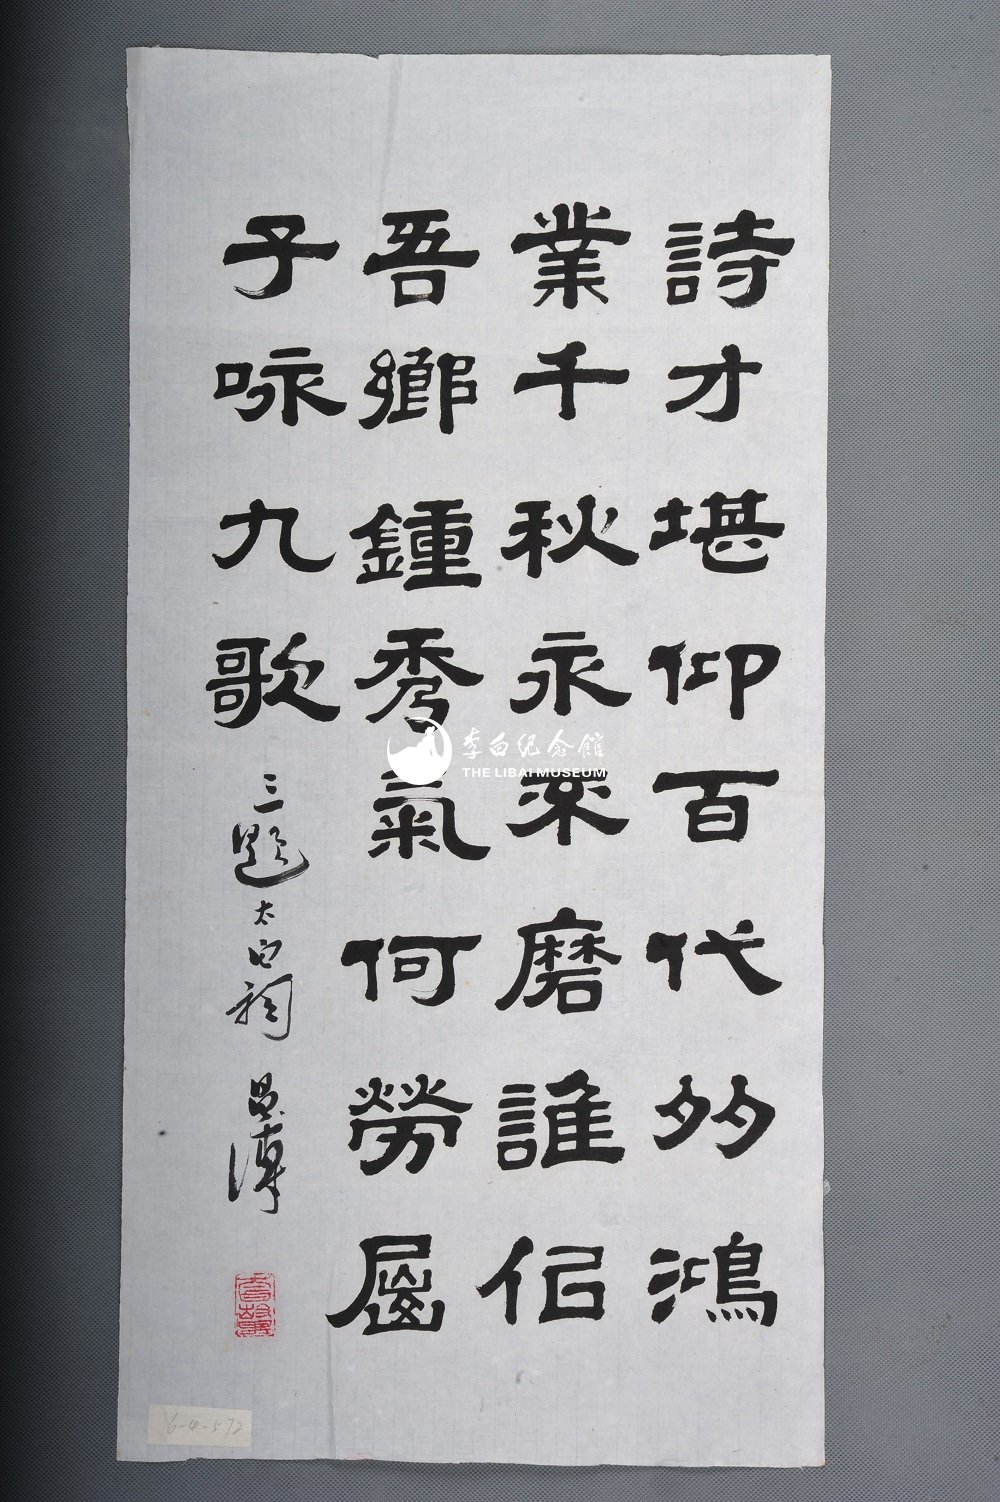 詩才堪仰百代外鴻
業千秋永不磨誰侣
吾鄉鍾秀氣何勞屈
子咏九歌
三題太白祠
李白纪念館
THE LIBAI MUSEUM
6-4-572